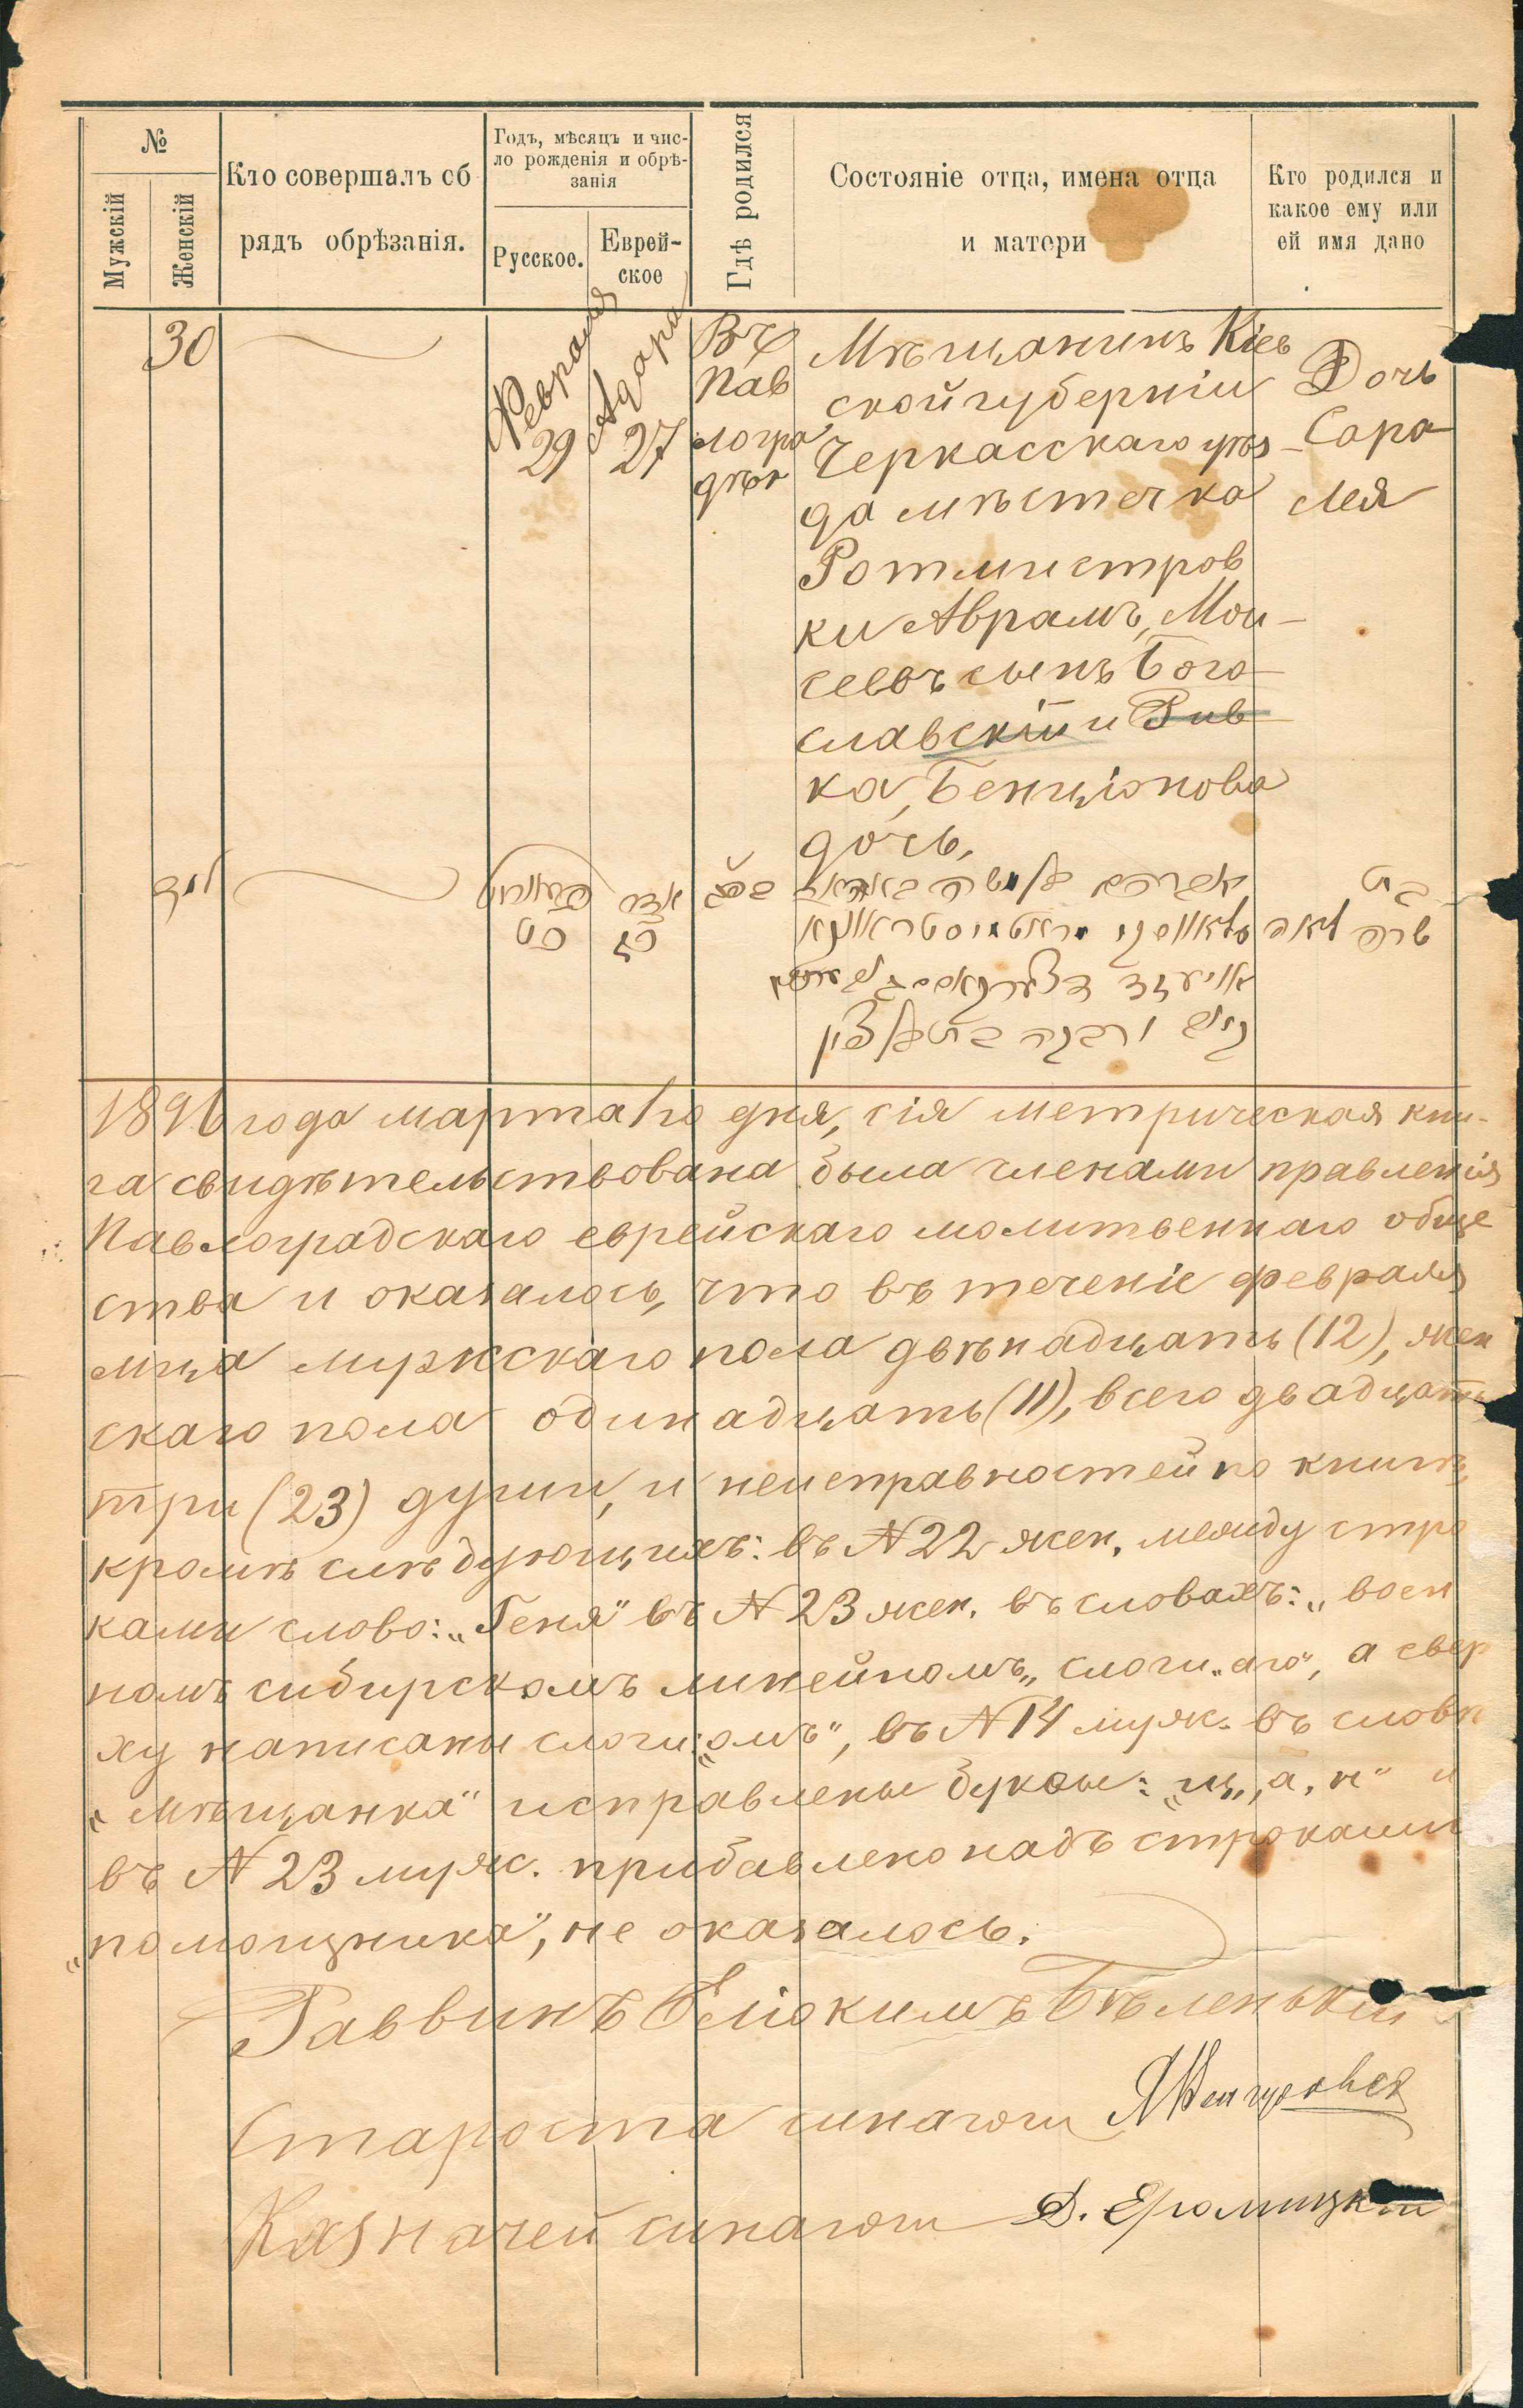 №
Мужскій
Женскій
Кто совершалъ об
рядъ обрѣзанія.
Годъ, мѣсяцъ и чис-
ло рожденія и обрѣ-
занія
Русское.
Еврей-
ское
Гдѣ родился
Состояніе отца, имена отца
и матери
Кто родился и
какое ему или
ей имя дано
30
Февраля
29
Адара
27
Въ
Пав
логра
дѣ
Мѣщанинъ Кіев
ской губерніи
Черкасскаго уѣз
да мѣстечка
Ротмистров
ки Аврамъ, Мои-
сеевъ сынъ Бого-
славскій и Рив
ка, Бенціонова
дочь,
Дочь
Сара
Лея
שרה לאה
1896 года марта 1го дня, сія метрическая кни-
га свидѣтельствована была членами правленія
Павлоградскаго еврейскаго молитвеннаго обще
ства и оказалось, что въ теченіе февраля
мца мужскаго пола двѣнадцать (12), жен
скаго пола одинадцать (11), всего двадцать
три (23) души, и неисправностей по книгѣ,
кромѣ слѣдующихъ: въ N 22 жен. между стро
ками слово: „Геня" въ N 23 жен. въ словахъ: „воен
номъ сибирскомъ линейномъ„ слоги „аго", а свер
ху написаны слоги: „омъ", въ N 14 муж. въ словѣ
„мѣщанка" исправлены буквы: „щ„, а, н" и
въ N 23 муж. прибавлено надъ строками
„помощника", не оказалось.
Раввинъ Еліокимъ Бѣленькій
Староста синагоги
Казначей синагоги